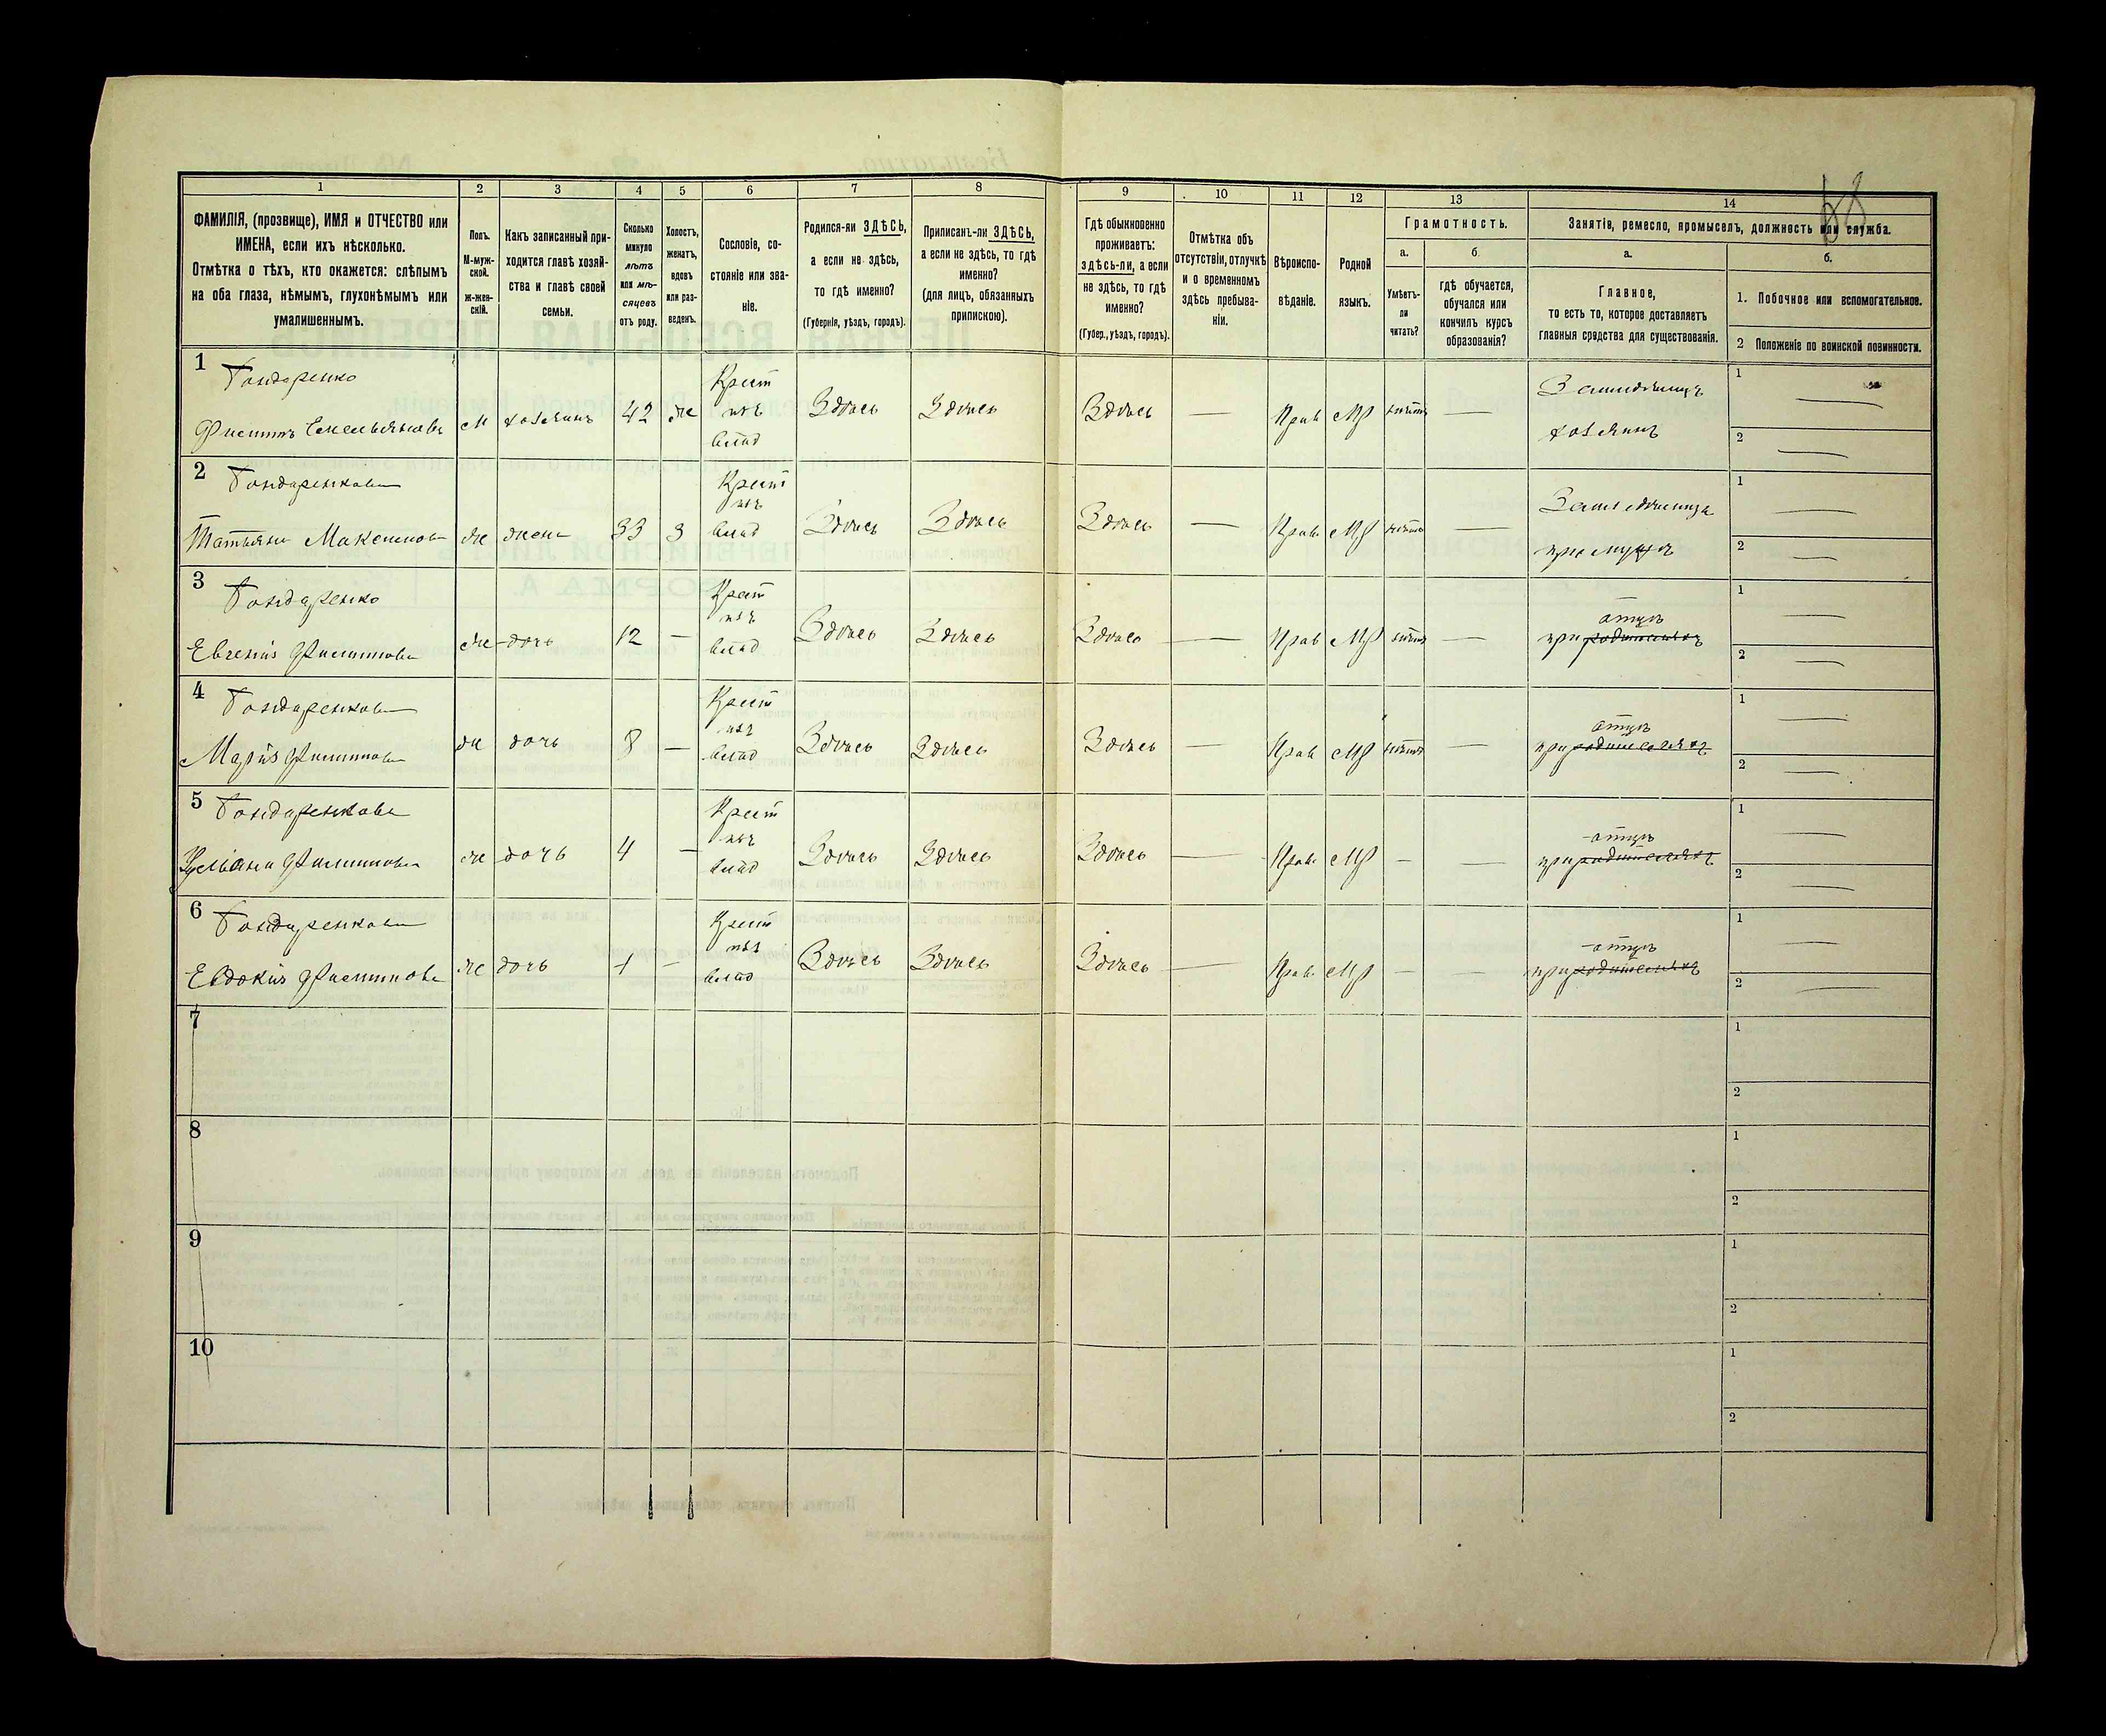 68
1
2
3
4
5
6
7
8
9
10
11
12
13
14
ФАМИЛІЯ, (прозвище), ИМЯ и ОТЧЕСТВО или
ИМЕНА, если ихъ нѣсколько.
Отмѣтка о тѣхъ, кто окажется: слѣпымъ
на оба глаза, нѣмымъ, глухонѣмымъ или
умалишеннымъ.
Полъ.
М-муж-
ской.
ж-жен-
скій.
Какъ записанный при-
ходится главѣ хозяй-
ства и главѣ своей
семьи.
Сколько
минуло
лѣтъ
или мѣ-
сяцевъ
отъ роду.
Холостъ,
женатъ,
вдовъ
или раз-
веденъ.
Сословіе, со-
стояніе или зва-
ніе.
Родился-ли ЗДѢСЬ,
а если не здѣсь,
то гдѣ именно?
(Губернія, уѣздъ, городъ).
Приписанъ-ли ЗДѢСЬ,
а если не здѣсь, то гдѣ
именно?
(для лицъ, обязанныхъ
припискою).
Гдѣ обыкновенно
проживаетъ:
здѣсь-ли, а если
не здѣсь, то гдѣ
именно?
(Губер., уѣздъ, городъ).
Отмѣтка объ
отсутствіи, отлучкѣ
и о временномъ
здѣсь пребыва-
ніи.
Вѣроиспо-
вѣданіе.
Родной
языкъ.
Грамотность.
а.
Умѣетъ-
ли
читать?
б.
гдѣ обучается,
обучался или
кончилъ курсъ
образованія?
Занятіе, ремесло, промыселъ, должность или служба.
а.
Главное,
то есть то, которое доставляетъ
главныя средства для существованія.
б.
1. Побочное или вспомогательное.
2 Положеніе по воинской повинности.
1
Гондаренко
Филиппъ Емельяновъ
М
хозяинъ
42
ж
Крест
изъ
влад
Здѣсь
Здѣсь
Здѣсь
—
Прав
Мр
нѣтъ
—
Земледѣлецъ
хозяинъ
1 —
2 —
2
Гондаренкова
Татьяна Максимов
ж
жена
33
З
Крест
изъ
влад
Здѣсь
Здѣсь
Здѣсь
—
Прав
Мр
нѣтъ
—
Земледѣлица
при мужѣ
1 —
2 —
3
Гондаренко
Евгенія Филиппова
ж
дочь
12
—
Крест
изъ
влад
Здѣсь
Здѣсь
Здѣсь
—
Прав
Мр
нѣтъ
—
отцѣ
при родителяхъ
1 —
2 —
4
Гондаренкова
Марія Филиппова
ж
дочь
8
—
Крест
изъ
влад
Здѣсь
Здѣсь
Здѣсь
—
Прав
Мр
нѣтъ
—
отцѣ
при родителяхъ
1 —
2 —
5
Гондаренкова
Ульяна Филиппова
ж
дочь
4
—
Крест
изъ
влад
Здѣсь
Здѣсь
Здѣсь
—
Прав
Мр
—
—
отцѣ
при родителяхъ
1 —
2 —
6
Гондаренкова
Евдокія Филиппова
ж
дочь
1
—
Крест
изъ
влад
Здѣсь
Здѣсь
Здѣсь
—
Прав
Мр
—
—
отцѣ
при родителяхъ
1 —
2 —
7
1
2
8
1
2
9
1
2
10
1
2